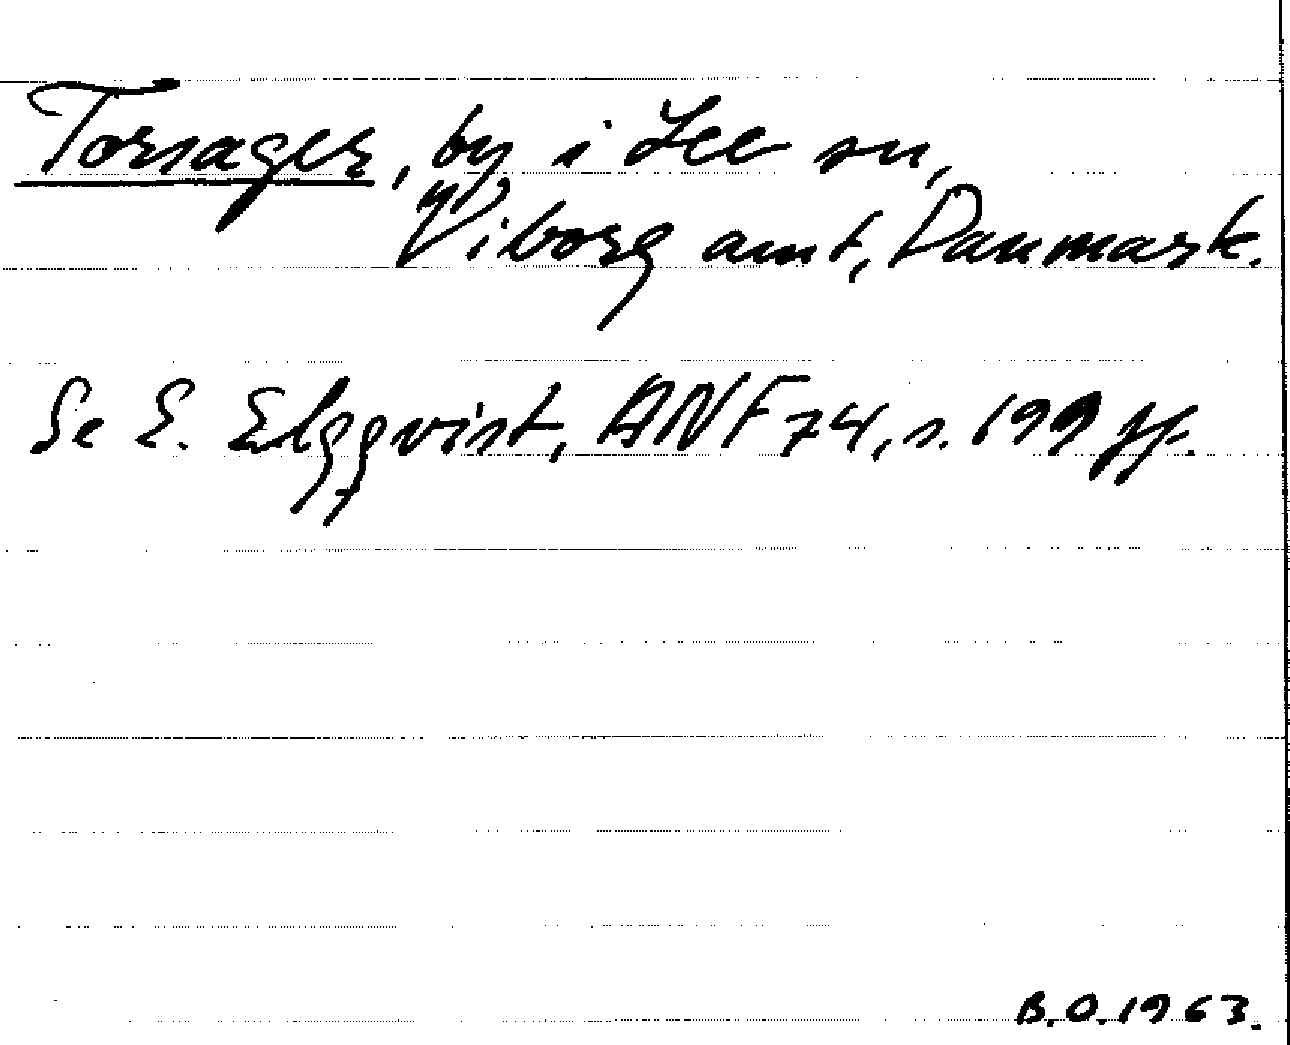 Torsager, by i Lee sn,
Viborg amt, Danmark.
Se E. Elgqvist, ANF 74, s. 199 ff.
B.O. 1963.